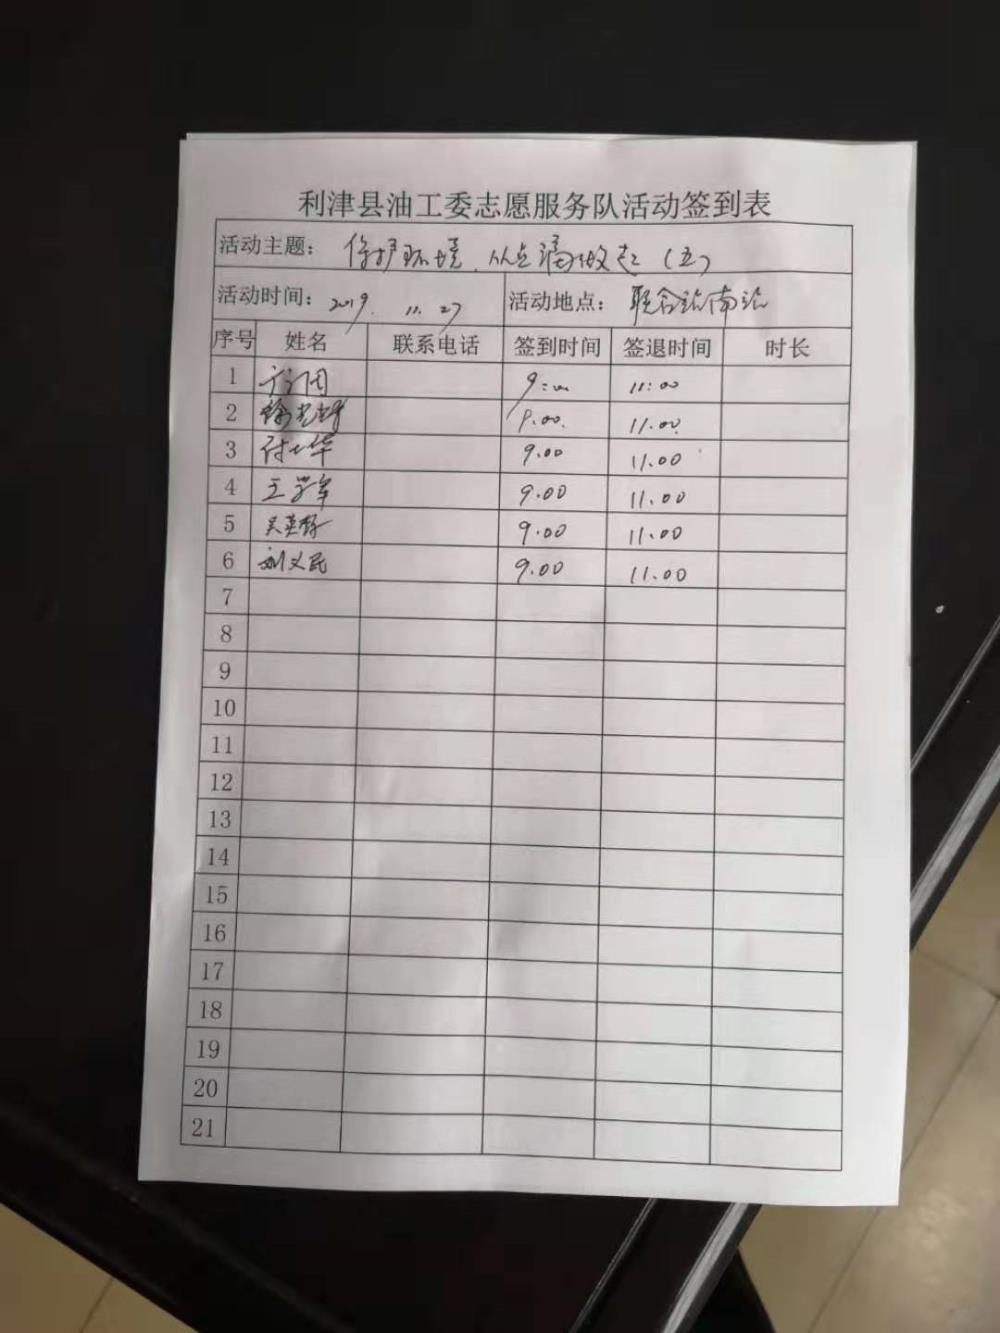 利津县油工委志愿服务队活动签到表
活动主题： 保护环境，从点滴做起（五）
活动时间： 2019. 11. 27 活动地点： 联合站南站
序号 姓名 联系电话 签到时间 签退时间 时长
1 9:00 11:00
2 9.00. 11.00
3 付士华 9.00 11.00
4 王学军 9.00 11.00
5 吴英 9.00 11.00
6 刘义民 9.00 11.00
7
8
9
10
11
12
13
14
15
16
17
18
19
20
21